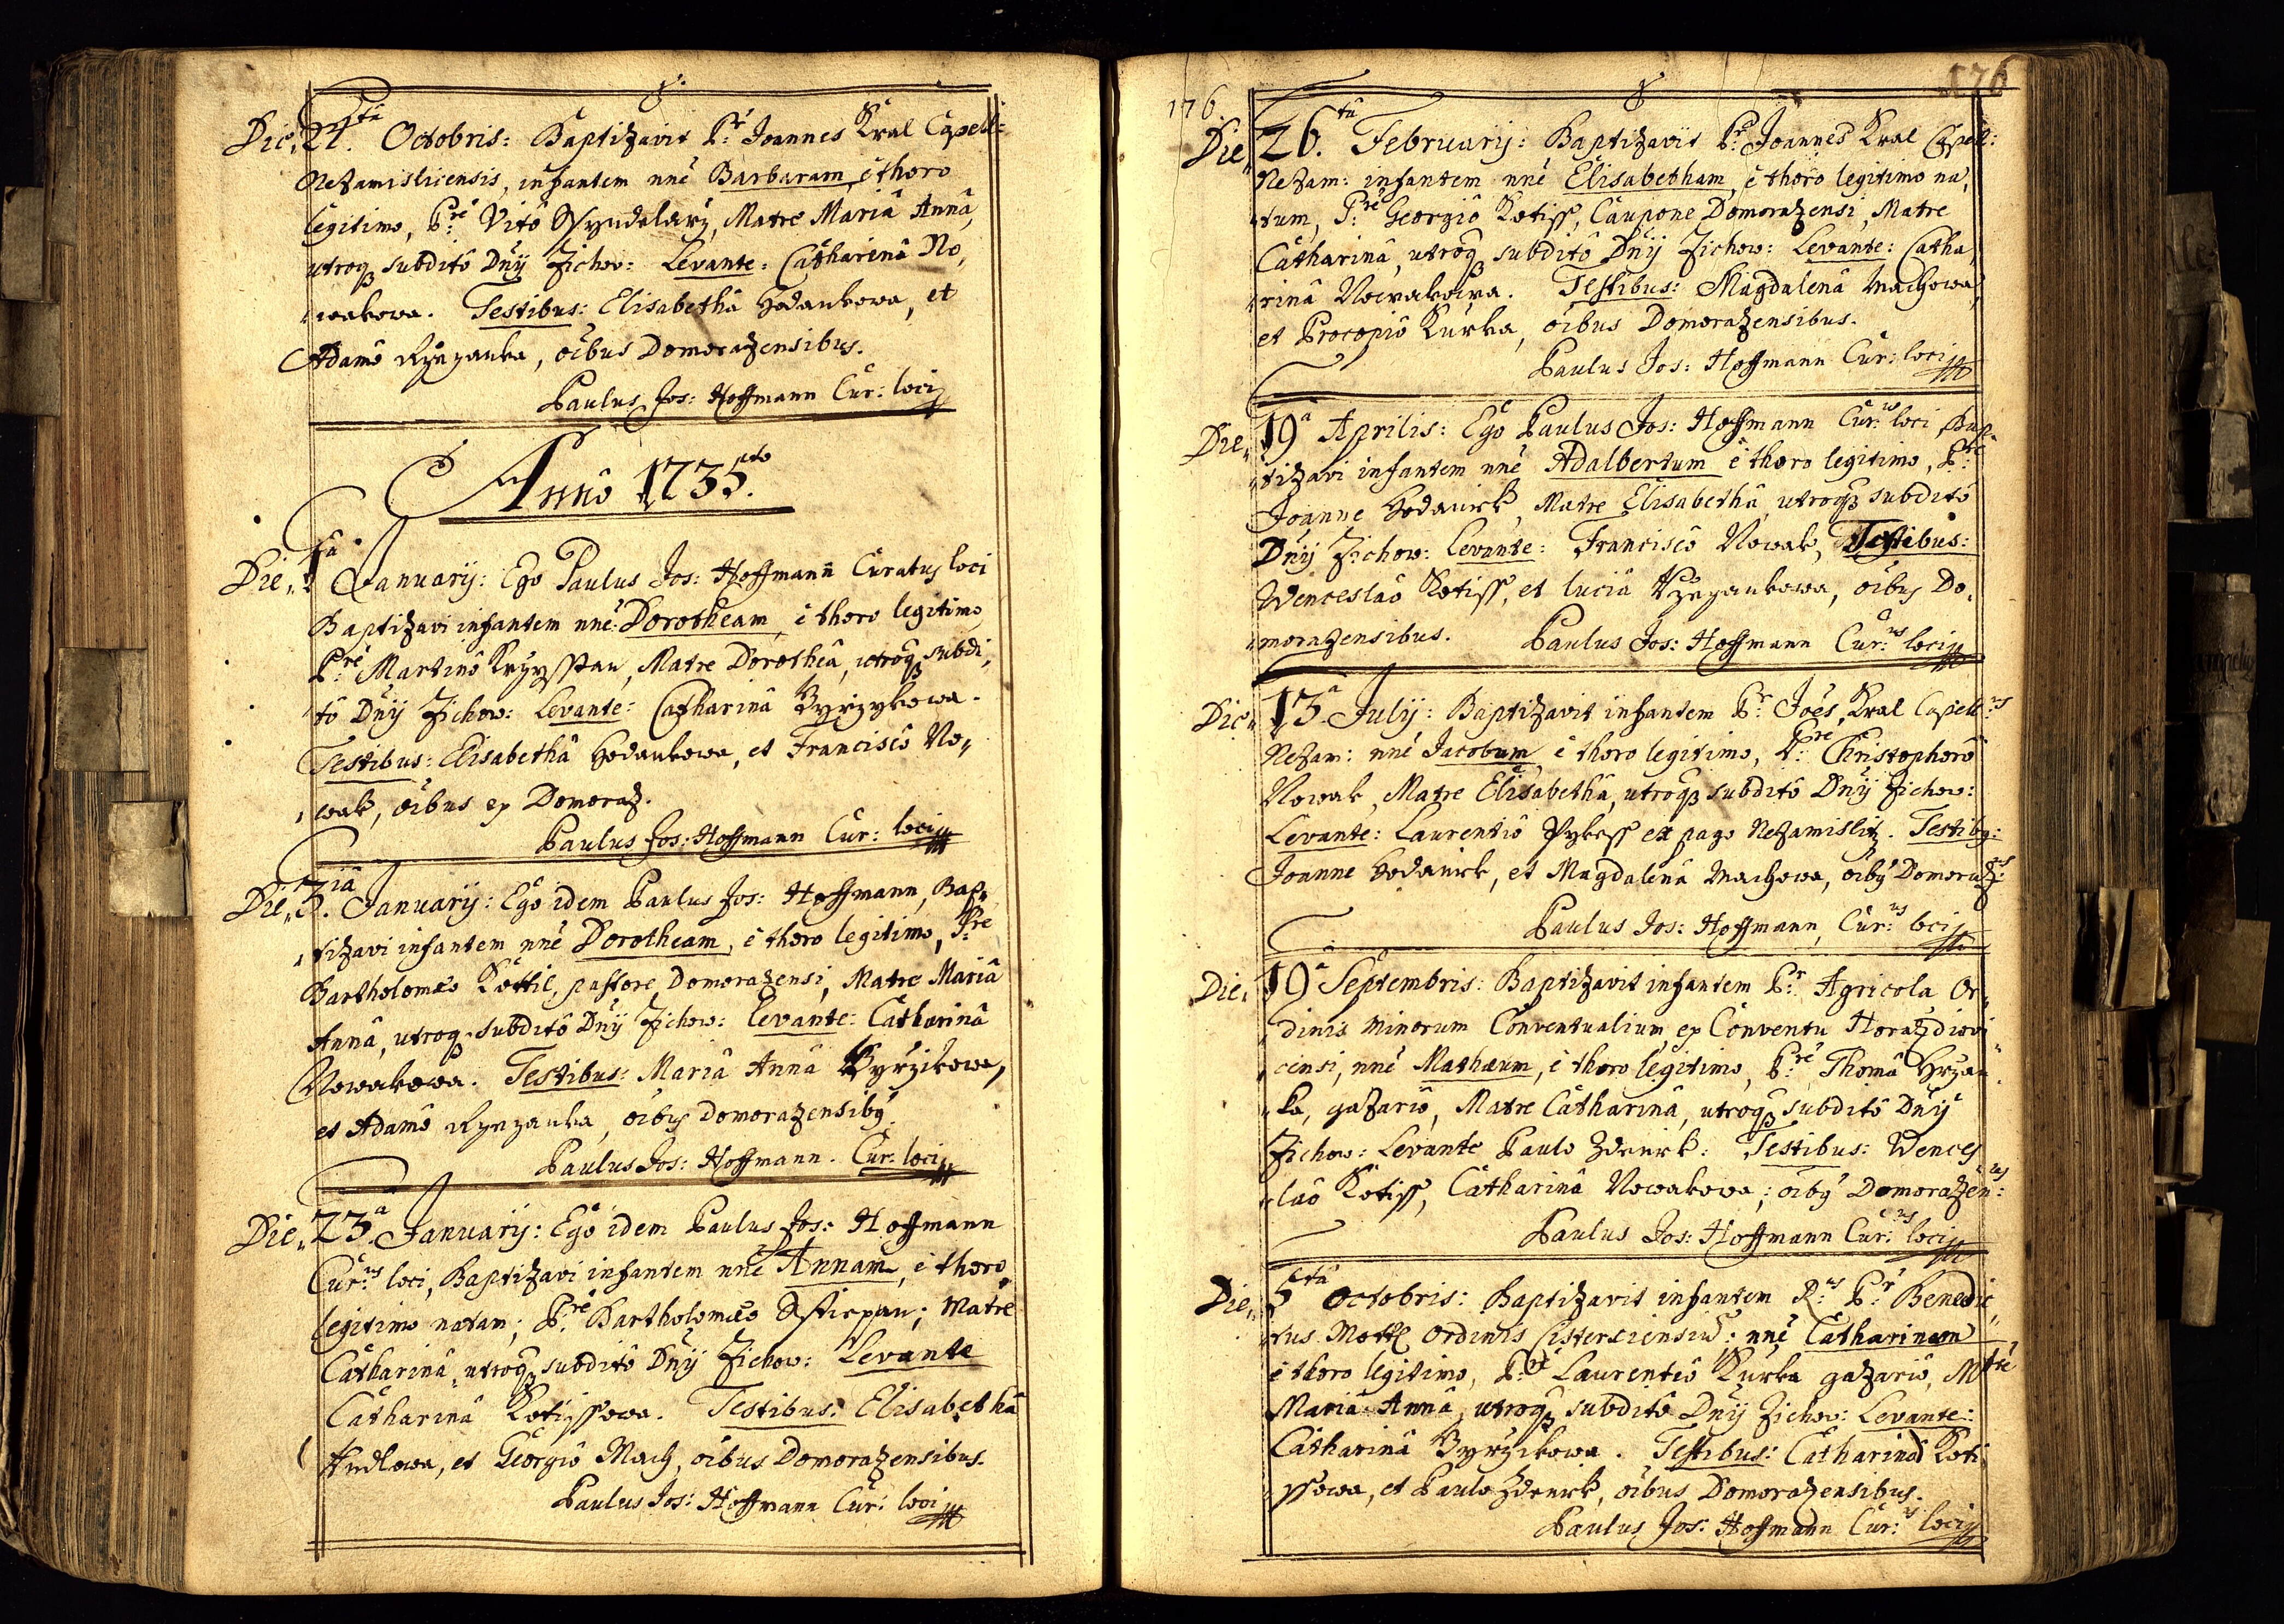 Die 21.sta Octobris: Baptizavit P:r Joannes Kral Capell:
Nezamisliensis, infantem nnē Barbaram, è thoro
legitimo, P:re Vitô Wyndelarz, Matre Mariâ Annâ,
utroq subditô Dnÿ Zichov: Levante: Catharinâ No,
wakowa. Testibus: Elisabethâ Hodankowa, et
Adamô Rzezanka, oibus Domorazensibus.
Paulus Jos: Hoffmann Cur: loci
Annô 1735.to
Die 1.ma Januarÿ: Ego Paulus Jos: Hoffmann Curatus loci
Baptizavi infantem nnē Dorotheam, è thoro legitimo
P:re Martinô Krzysstan, Matre Dorotheâ, utroq subdi,
tô Dnÿ Zichow: Levante: Catharinâ Byrzykowa.
Testibus: Elisabethâ Hodankowa, et Franciscô No,
wak, oibus ex Domoraz.
Paulus Jos: Hoffmann Cur: loci
Die 3.iâ Januarÿ: Ego idem Paulus Jos: Hoffmann, Bap,
tizavi infantem nnē Dorotheam, è thoro legitimo, P:re
Bartholomæo Kottil, pastore Domorazensi, Matre Mariâ
Annâ, utroq subditô Dnÿ Zichow: Levante: Catharinâ
Nowakowa. Testibus: Mariâ Annâ Byrzikowa,
et Adamô Rzezanka, oibus Domorazensibq
Paulus Jos: Hoffmann. Cur: loci
Die 23.a Januarÿ: Ego idem Paulus Jos: Hoffmann
Cur:us loci, Baptizavi infantem nnē Annam, è thoro
legitimo natam, P:re Bartholomæo Sstiepan, Matre
Catharinâ, utroq subditô Dnÿ Zichow: Levante
Catharinâ Kotissowa. Testibus: Elisabethâ
Hudlowa, et Georgiô Mach, oibus Domorazensibus.
Paulus Jos: Hoffmann Cur: loci
176. 176
Die 26.ta Februarÿ: Baptizavit P:r Joannes Kral Capell:
Nezam: infantem nnē Elisabetham, è thoro legitimo na,
tum, P:re Georgiô Kotiss, Caupone Domorazensi, Matre
Catharinâ, utroq subditô Dnÿ Zichow: Levante: Catha,
rinâ Nowakowa. Testibus: Magdalenâ Machowa,
et Procopiô Kurka, oibus Domorazensibus.
Paulus Jos: Hoffmann Cur: loci
Die 19.a Aprilis: Ego Paulus Jos: Hoffmann Cur:us loci Bap,
tizavi infantem nnē Adalbertum è thoro legitimo, P:re
Joanne Hodanick, Matre Elisabethâ, utroq subditô
Dnÿ Zichow: Levante: Franciscô Nowak, Testibus:
Wenceslaô Kotiss, et luciâ Rzezankowa, oibus Do,
morazensibus. Paulus Jos: Hoffmann Cur:us loci
Die 13.a Julÿ: Baptizavit infantem P:r Joēs Kral Capell:us
Nezam: nnē Jacobum è thoro legitimo, P:re Christophorô
Nowak, Matre Elisabethâ, utroq subditô Dnÿ Zichow:
Levante: Laurentiô Pykess ex pago Nezamislitz. Testibq:
Joanne Hodanick, et Magdalenâ Machowa, oibq Domoraz:
Paulus Jos: Hoffmann, Cur:us loci
Die 19.a Septembris: Baptizavit infantem P:r Agricola Or,
dinis Minorum Conventualium ex Conventu Horazdiovi
censi, nnē Mathæum, è thoro legitimo, P:re Thomâ Hrzan,
ka, gazariô, Matre Catharinâ, utroq subditô Dnÿ
Zichow: Levante Paulo Zdenek: Testibus: Wences
laô Kotiss, Catharinâ Nowakowa, oibq Domorazen:us
Paulus Jos: Hoffmann Cur:us loci
Die 5.ta Octobris: Baptizavit infantem R:us P:r Benedic,
tus Mottl Ordinis Cisterciensiū: nnē Catharinam
è thoro legitimo, P:re Laurentiô Kurka gazariô, Mtre
Mariâ Annâ, utroq subditô Dnÿ Zichov: Levante:
Catharinâ Byrzikowa. Testibus: Catharinâ Koti
ssowa, et Paulo Zdenek, oibus Domorazensibus.
Paulus Jos: Hoffmann Cur:us loci